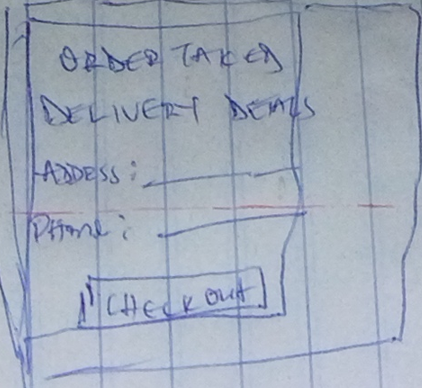 ORDER TAKEN
DELIVERY DETAILS
ADDESS:
Phone:
CHECK OUT